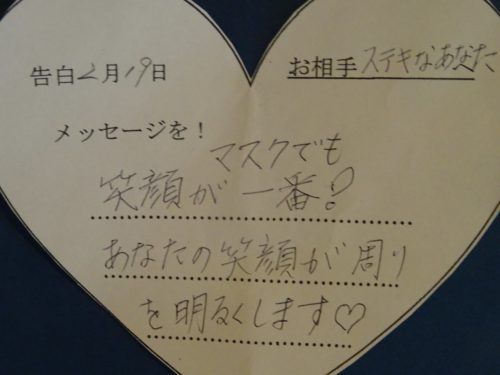 告白2月19日
お相手 ステキなあなた
メッセージを!
マスクでも
笑顔が一番!
あなたの笑顔が周り
を明るくします♡